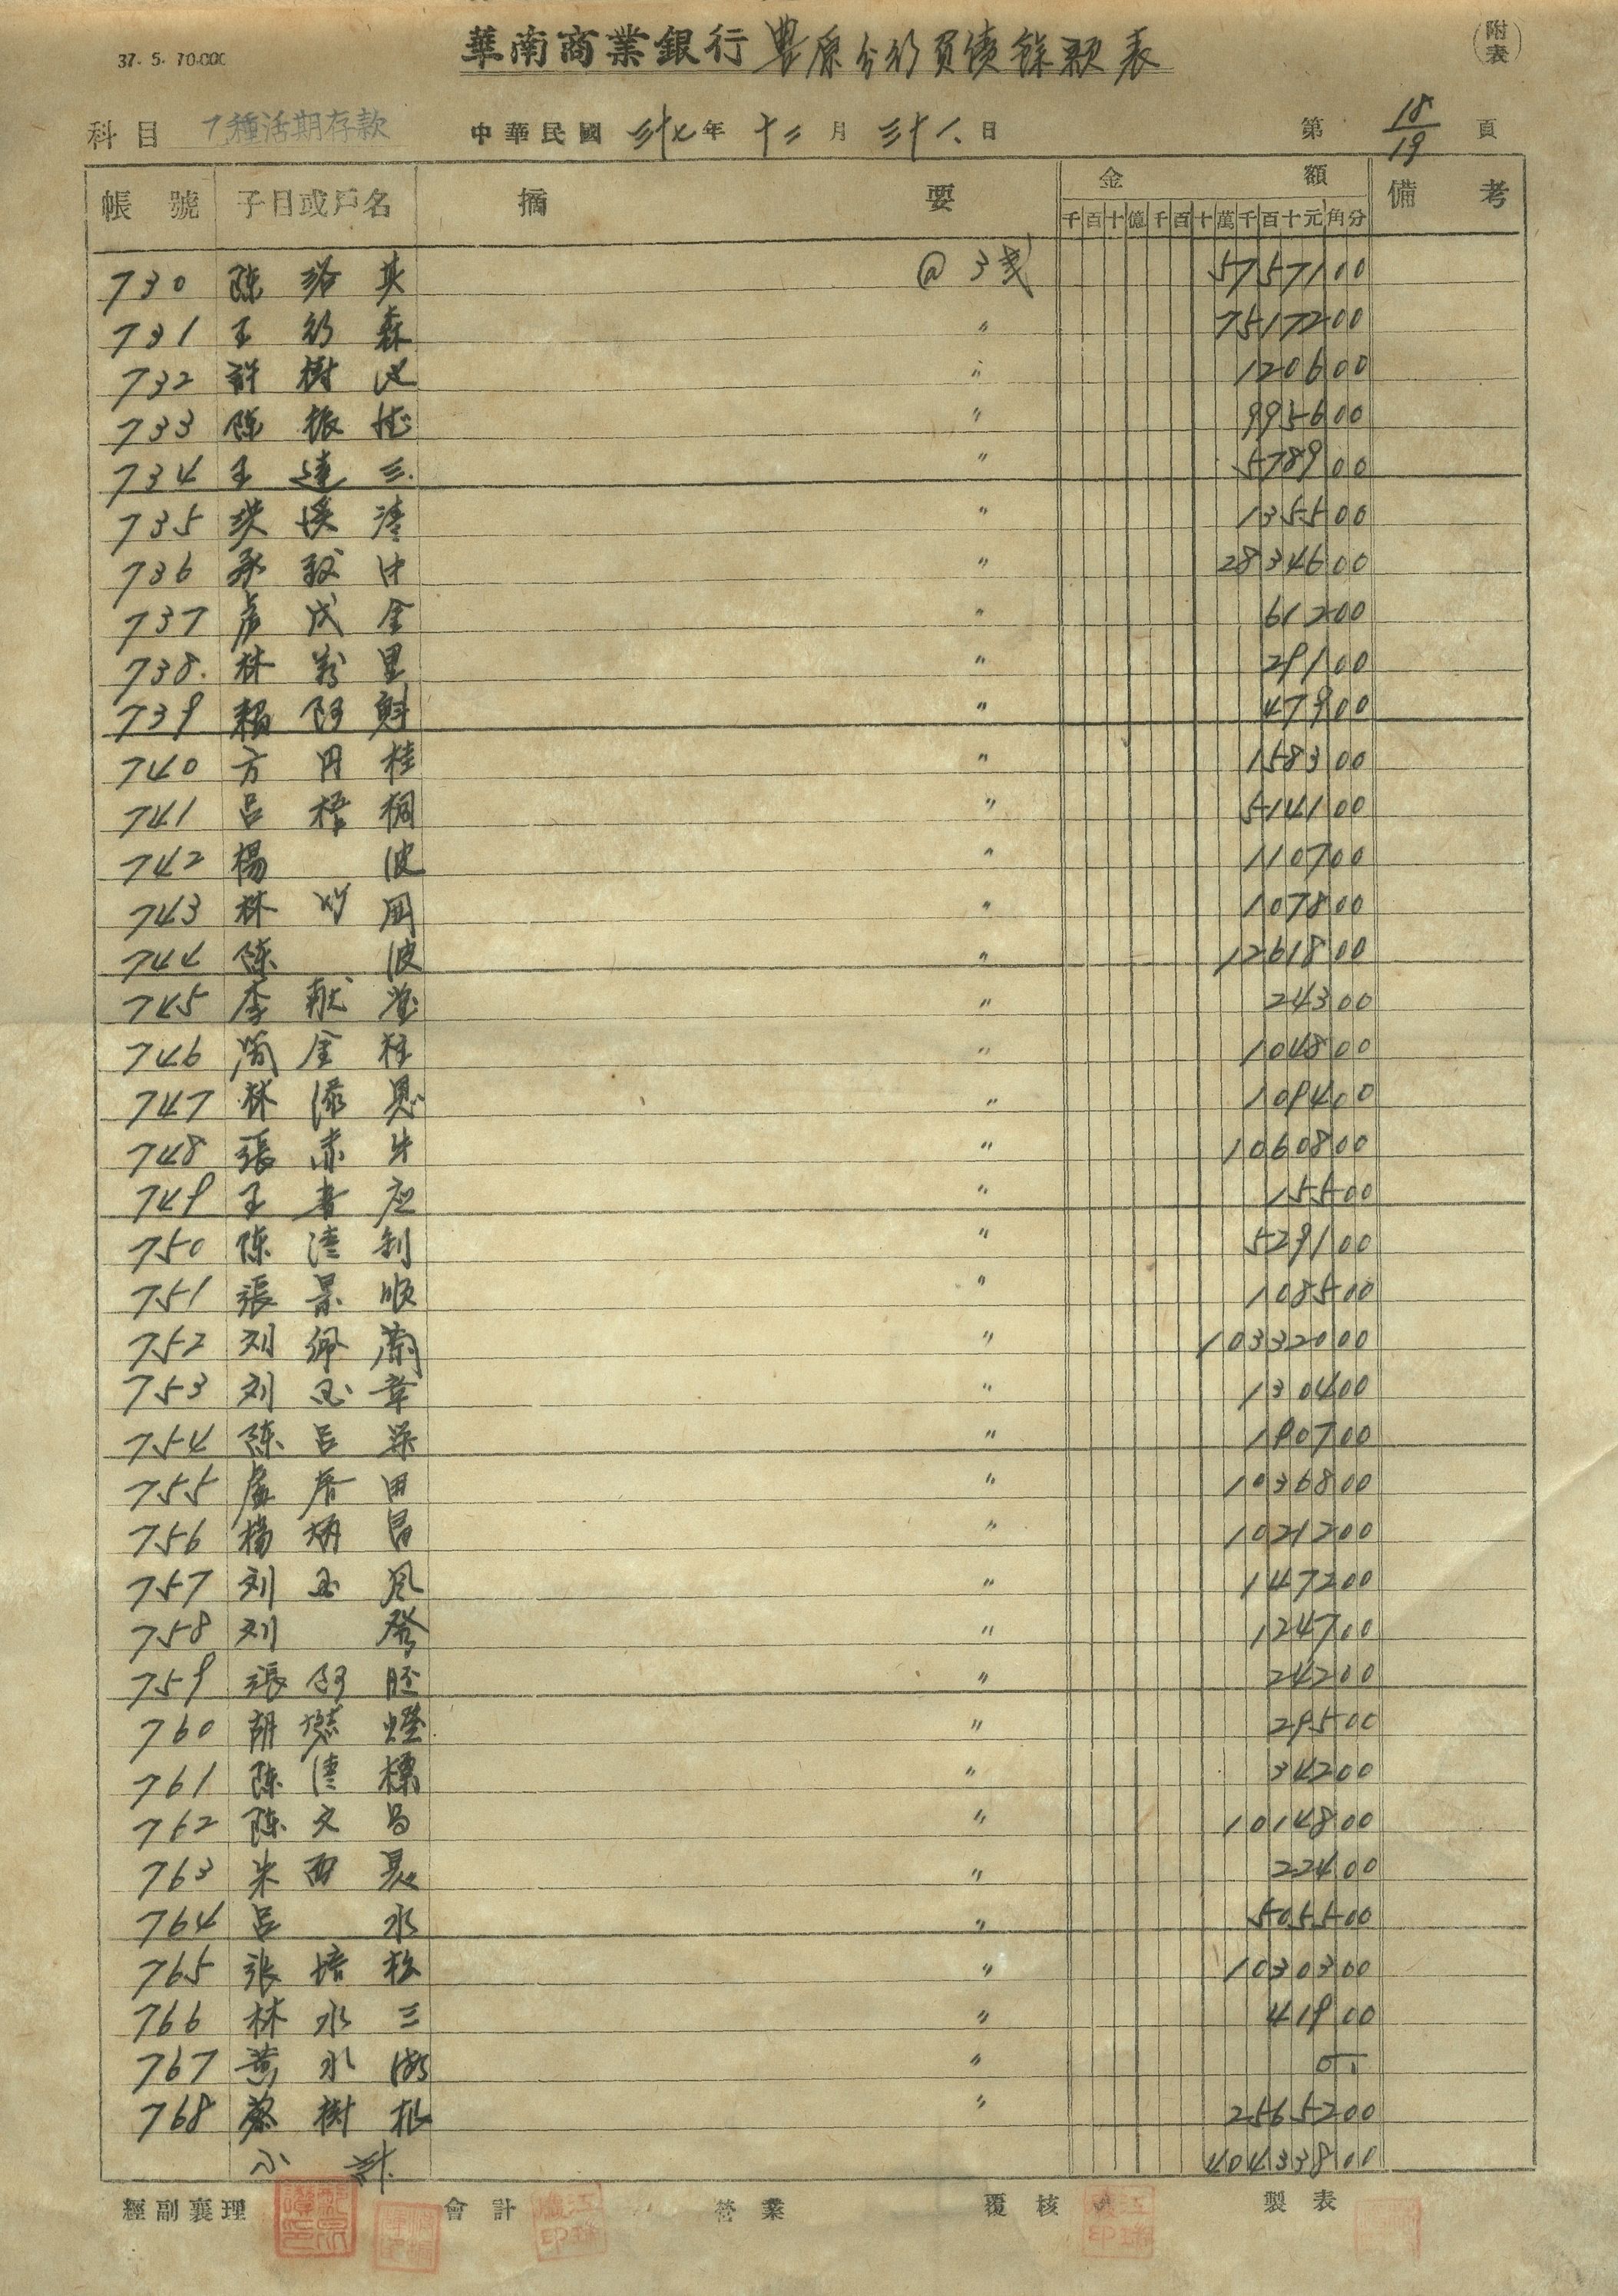 37. 5. 10.000
華南商業銀行豐原分行負債餘額表
(附表)
科目 乙種活期存款 中華民國 三十七年 十二月 三十一日 第 18/19 頁
帳號 子目或戶名 摘要 金額 備考
千百十億千百十萬千百十元角分
730 陳 其 @ 3 5757100
731 王 森 〃 7517200
732 許樹 〃 120600
733 陳振 〃 995600
734 王達三 〃 578900
735 洪溪清 〃 135500
736 〃 2834600
737 成金 〃 61200
738 林 里 〃 29100
739 賴阿魁 〃 47900
740 方丹桂 〃 158300
741 呂梧桐 〃 514100
742 楊波 〃 110700
743 林 〃 107800
744 陳波 〃 1261800
745 李献堂 〃 24300
746 簡金柱 〃 104800
747 林添恩 〃 109400
748 張赤牛 〃 1060800
749 王 〃 15500
750 陳清利 〃 529100
751 張景順 〃 108500
752 刘佩蘭 〃 10332000
753 刘玉章 〃 130400
754 陳呂 〃 190700
755 盧 田 〃 1036800
756 楊炳昌 〃 1021200
757 刘玉 〃 147200
758 刘發 〃 124700
759 張阿 〃 24200
760 胡燃燈 〃 29500
761 陳清標 〃 34200
762 陳文昌 〃 1014800
763 西 〃 22400
764 呂水 〃 505500
765 張培松 〃 1030300
766 林水三 〃 41900
767 黃水 〃
768 蔡樹根 〃 2565200
小計 40433800
經副襄理 會計 營業 覆核 製表